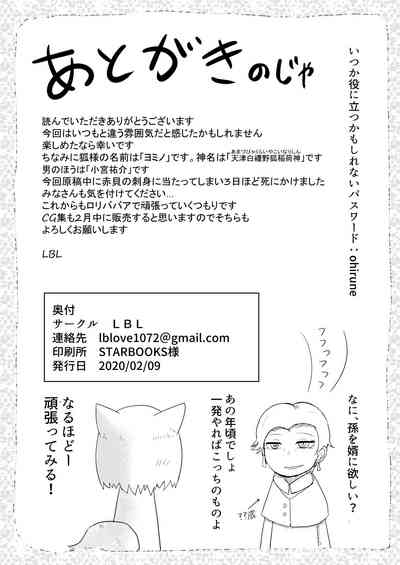 あとがきのじゃ
読んでいただきありがとうございます
今回はいつもと違う雰囲気だと感じたかもしれません
楽しめたなら幸いです
ちなみに狐様の名前は「ヨミノ」です。神名は「天津白禮野狐稲荷神」です
男のほうは「小宮祐介」です
今回原稿中に赤貝の刺身に当たってしまい3日ほど死にかけました
みなさんも気を付けてください…
これからもロリババアで頑張っていくつもりです
CG集も2月中に販売すると思いますのでそちらも
よろしくお願いします
LBL
いつか役に立つかもしれないパスワード：ohirune
奥付
サークル　ＬＢＬ
連絡先　lblove1072@gmail.com
印刷所　STARBOOKS様
発行日　2020/02/09
フフっフフ？
なに、孫を婿に欲しい？
あの年頃でしょ
一発やればこっちのものよ
なるほどー
頑張ってみる！